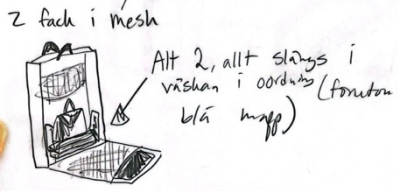 2 fack i mesh
Alt 2, allt slängs i
väskan i oordning (förutom
blå mapp)